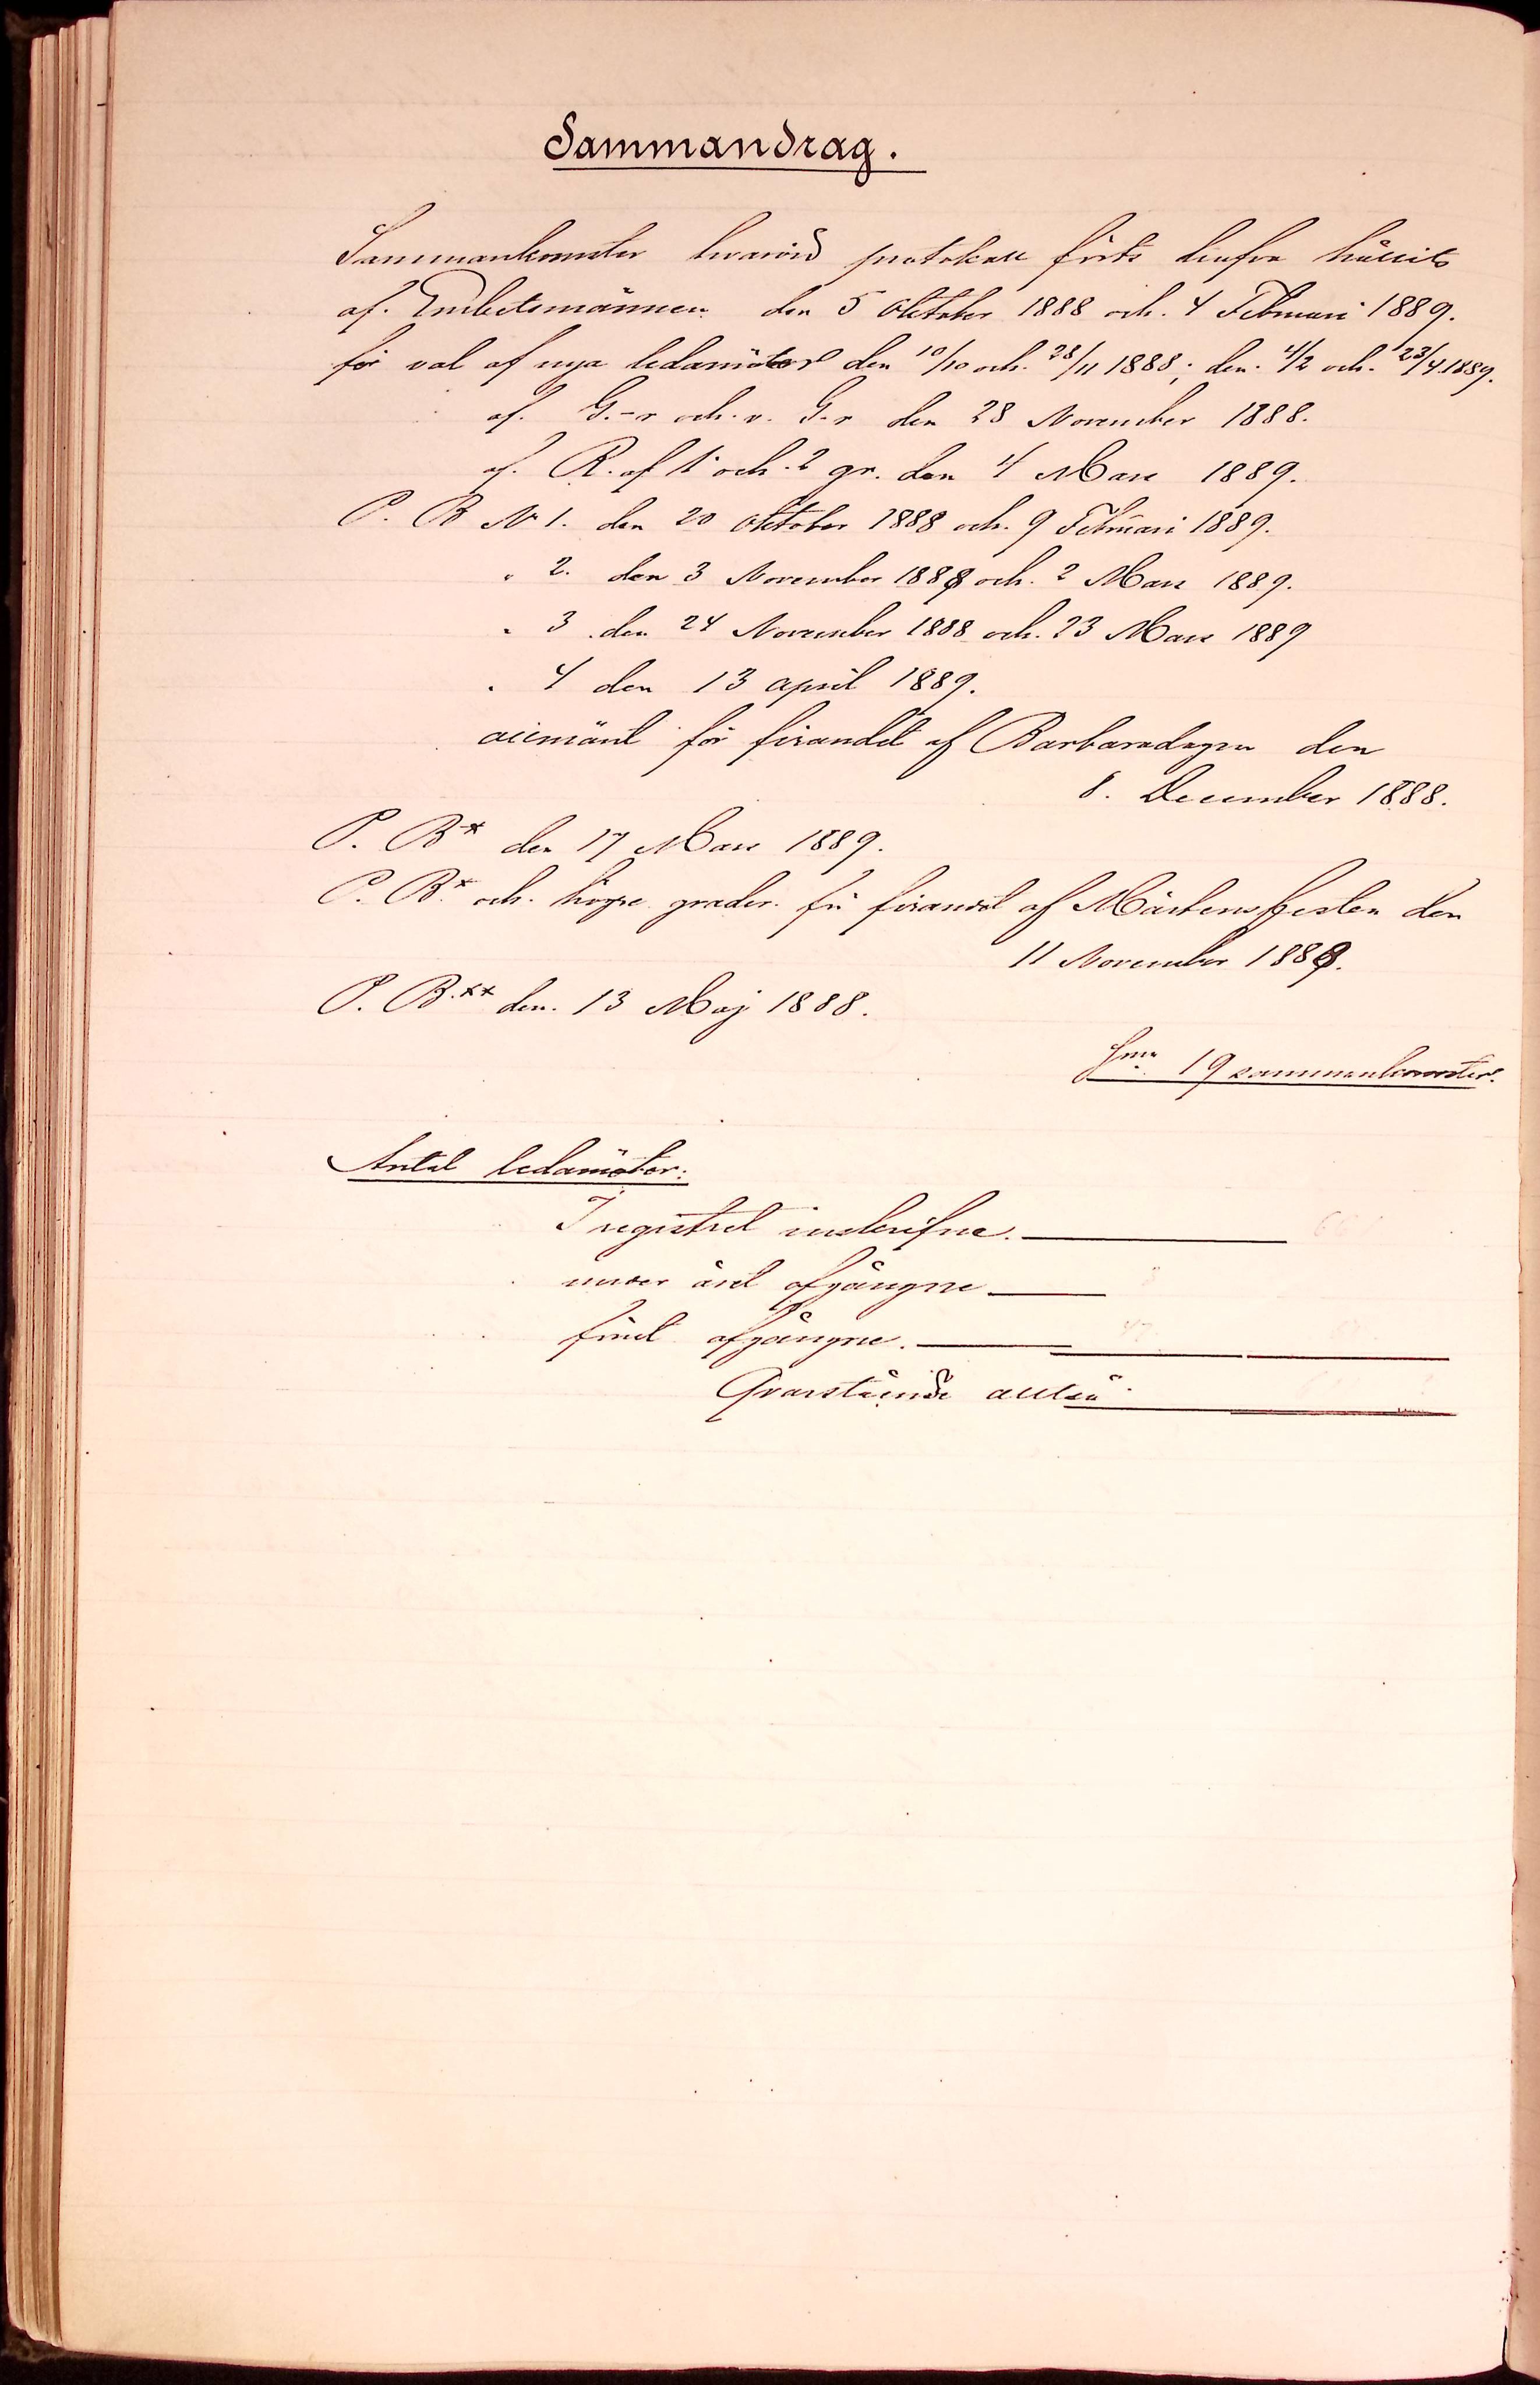 Sammandrag.
Sammankomster hvarvid protokoll förts hafva hållits
af Embetsmännen den 5 Oktober 1888 och 4 Februari 1889.
för val af nya ledamöter den 10/10 och 28/11 1888; den 4/2 och 23/4 1889.
af G.-r och v. G-r den 28 November 1888.
af R. af 1 och 2 gr. den 4 Mars 1889.
P. B N 1. den 20 Oktober 1888 och 9 Februari 1889.
" 2. den 3 November 1888 och 2 Mars 1889.
" 3. den 24 November 1888 och 23 Mars 1889
" 4 den 13 april 1889.
allmänt för firandet af Barbaradagen den
8. December 1888.
P. B* den 17 Mars 1889.
P. B* och högre grader för firandet af Mårtensfesten den
11 November 1888.
P. B.** den 13 Maj 1888.
Sma 19 sammankomster.
Antal ledamöter:
I registret inskrifne.
under året afgångne
förut afgångne. 47
Qvarstående alltså